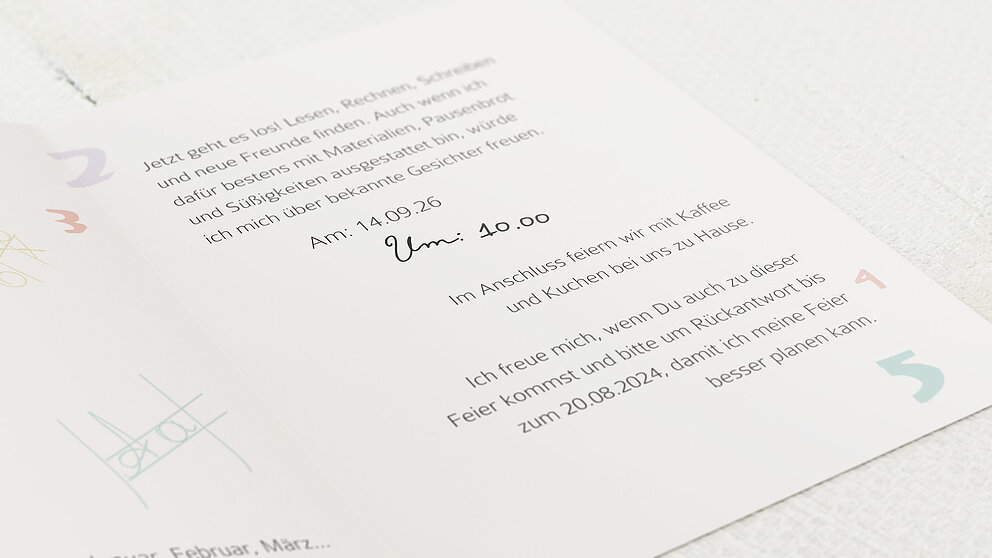 Jetzt geht es los! Lesen, Rechnen, Schreiben
und neue Freunde finden. Auch wenn ich
dafür bestens mit Materialien, Pausenbrot
und Süßigkeiten ausgestattet bin, würde
ich mich über bekannte Gesichter freuen.
Am: 14.09.26
Um: 10.00
Im Anschluss feiern wir mit Kaffee
und Kuchen bei uns zu Hause.
Ich freue mich, wenn Du auch zu dieser
Feier kommst und bitte um Rückantwort bis
zum 20.08.2024, damit ich meine Feier
besser planen kann.
2
3
4
5
Februar, März...